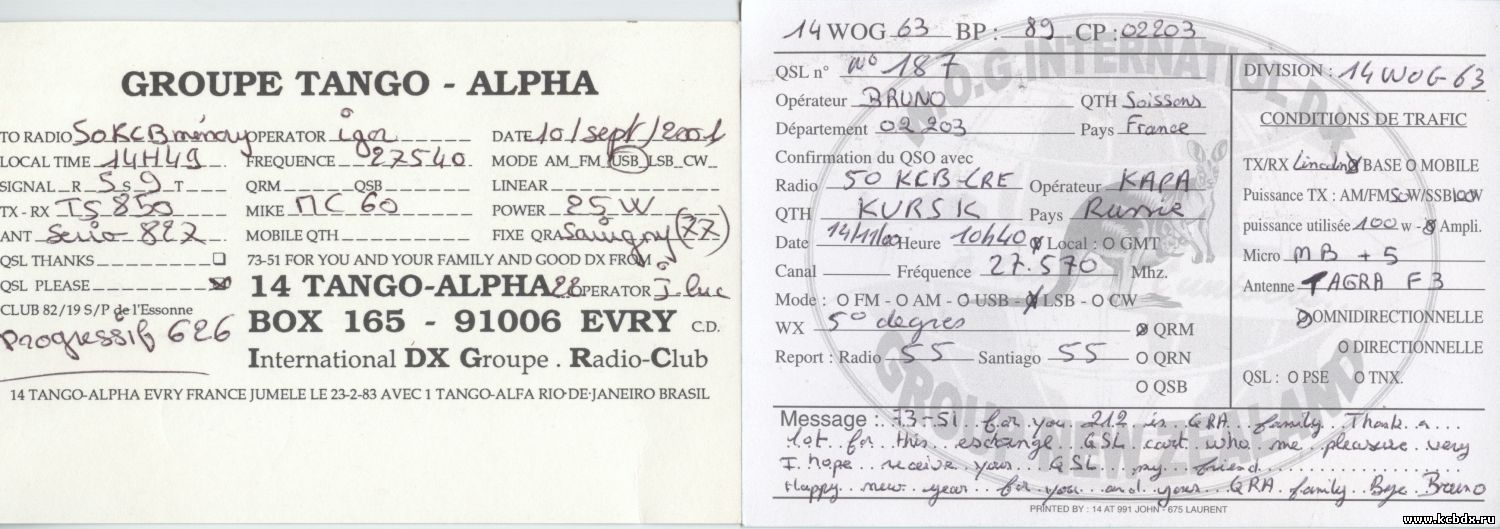 GROUPE TANGO - ALPHA
TO RADIO 50KCB OPERATOR igor DATE 10/sept/2001
LOCAL TIME 14H49 FREQUENCE 27540 MODE AM_FM_USB_LSB_CW_
SIGNAL_R_5_S_9_T___ QRM______QSB______ LINEAR________
TX - RX TS 850 MIKE MC 60 POWER 25 W
ANT Serio 827 MOBILE QTH__________ FIXE QRA Savigny (77)
QSL THANKS________ 73-51 FOR YOU AND YOUR FAMILY AND GOOD DX FROM
QSL PLEASE________ 14 TANGO-ALPHA 22 OPERATOR j.luc
CLUB 82/19 S/P de l'Essonne
Progressif 626
BOX 165 - 91006 EVRY C.D.
International DX Groupe . Radio-Club
14 TANGO-ALPHA EVRY FRANCE JUMELE LE 23-2-83 AVEC 1 TANGO-ALFA RIO-DE-JANEIRO BRASIL
14 WOG 63 BP : 89 CP : 02203
QSL n° N° 187
Opérateur BRUNO QTH Soissons
Département 02203 Pays France
Confirmation du QSO avec
Radio 50 KCB-CRE Opérateur KAPA
QTH KURSK Pays Russie
Date 14/11/00 Heure 10h40 O Local : O GMT
Canal ______ Fréquence 27.570 Mhz.
Mode : O FM - O AM - O USB - O LSB - O CW
WX 5° degres O QRM
Report : Radio 55 Santiago 55 O QRN
O QSB
DIVISION : 14 WOG-63
CONDITIONS DE TRAFIC
TX/RX Lincoln O BASE O MOBILE
Puissance TX : AM/FM 50W/SSB 100W
puissance utilisée 100 w - O Ampli.
Micro MB + 5
Antenne TAGRA F3
O OMNIDIRECTIONNELLE
O DIRECTIONNELLE
QSL : O PSE O TNX.
Message : 73-51 for you 212 is QRA family. Thank a
lot for this exchange QSL cart who me pleasure very
I hope receive your QSL my friend
Happy new year for you and your QRA family. Bye Bruno
PRINTED BY : 14 AT 991 JOHN - 675 LAURENT
W.O.G INTERNATIONAL DX
GROUP NEW ZEALAND
www.kcbdx.ru